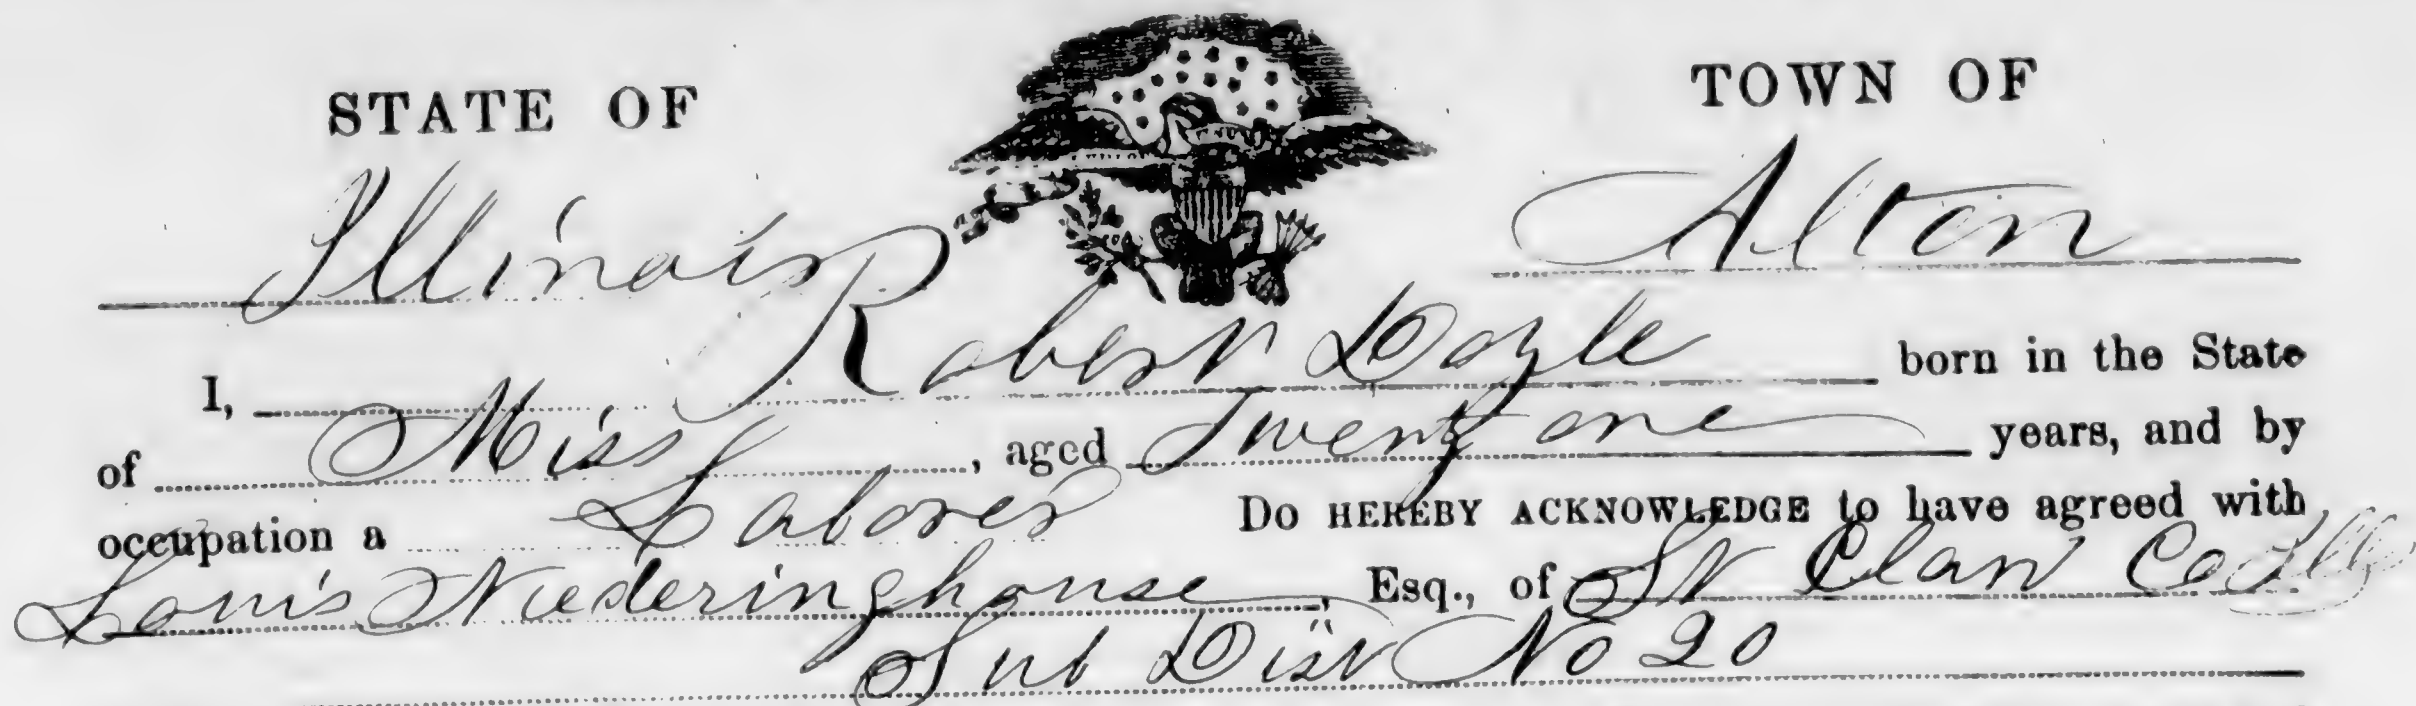 STATE OF TOWN OF
Illinois Alton
I, Robert Doyle born in the State
of Miss, aged Twenty one years, and by
occupation a Laborer Do HEREBY ACKNOWLEDGE to have agreed with
Louis Niederinghouse, Esq., of St Clair Co Ills
Sub Dist No 20